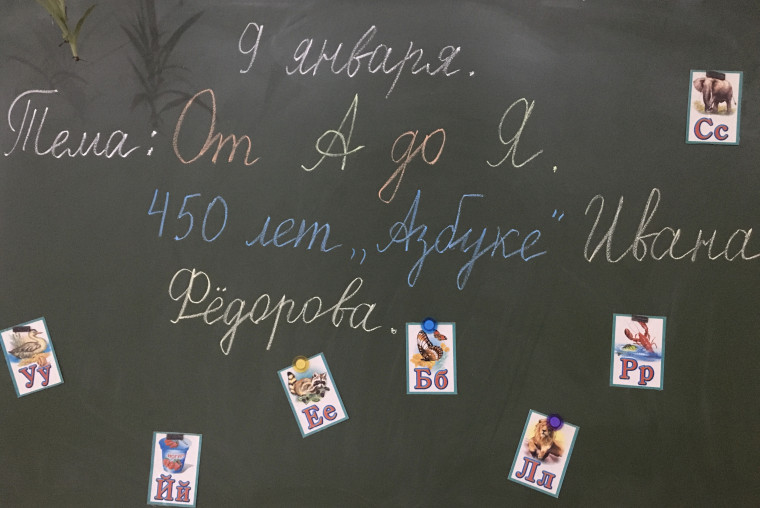 9 января.
Тема: От А до Я.
450 лет „Азбуке" Ивана
Фёдорова.
Сс
Уу
Ее
Бб
Рр
Йй
Лл